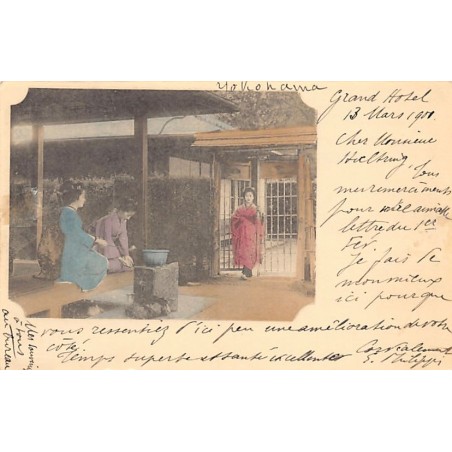 Yokohama
Grand Hotel
13 Mars 1901.
Cher Monsieur
Tous
mes remerciements
pour votre aimable
lettre du 1er
Fév.
Je fais le
mon mieux
ici pourque
vous ressentiez d'ici peu une amélioration de votre
côté.
Temps superbe et santé excellente
Cordialement
E. Philippi
Mes souv
à tous
au bureau